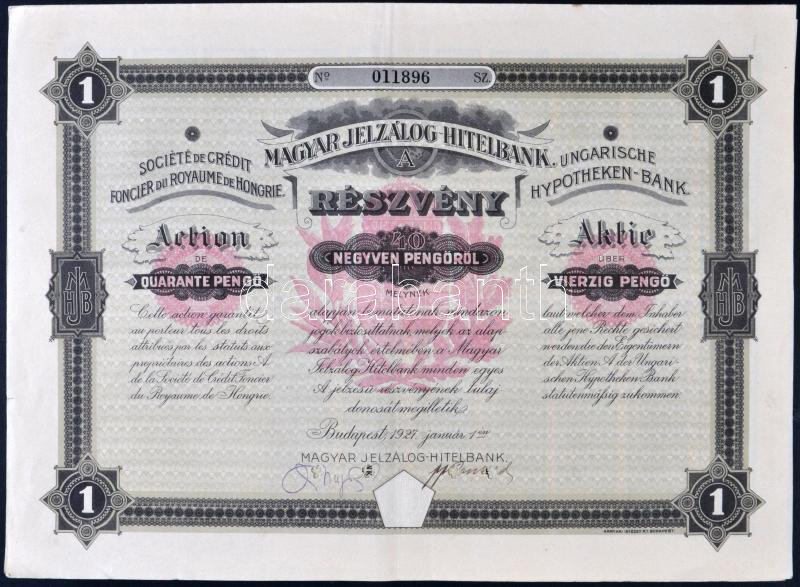 Nº 011896 SZ.
1
1
MAGYAR JELZÁLOG-HITELBANK.
A
RÉSZVÉNY
40
NEGYVEN PENGŐRŐL
MELYNEK
alapján bemutatónak mindazon
jogok biztosíttatnak, melyek az alap
szabályok értelmében a Magyar
Jelzálog Hitelbank minden egyes
A jelzésű részvényének tulaj
donosát megilletik.
Budapest, 1927. január 1-én
MAGYAR JELZÁLOG-HITELBANK.
SOCIÉTÉ DE CRÉDIT
FONCIER DU ROYAUME DE HONGRIE.
Action
DE
QUARANTE PENGŐ
Cette action garantit
au porteur tous les droits
attribués par les statuts aux
propriétaires des actions A.
de la Société de Crédit Foncier
du Royaume de Hongrie.
UNGARISCHE
HYPOTHEKEN-BANK.
Aktie
ÜBER
VIERZIG PENGŐ
laut welcher dem Inhaber
alle jene Rechte gesichert
werden die den Eigentümern
der Aktien A der Ungari-
schen Hypotheken Bank
statutenmäßig zukommen.
MJHB
MJHB
1
1
darabanth